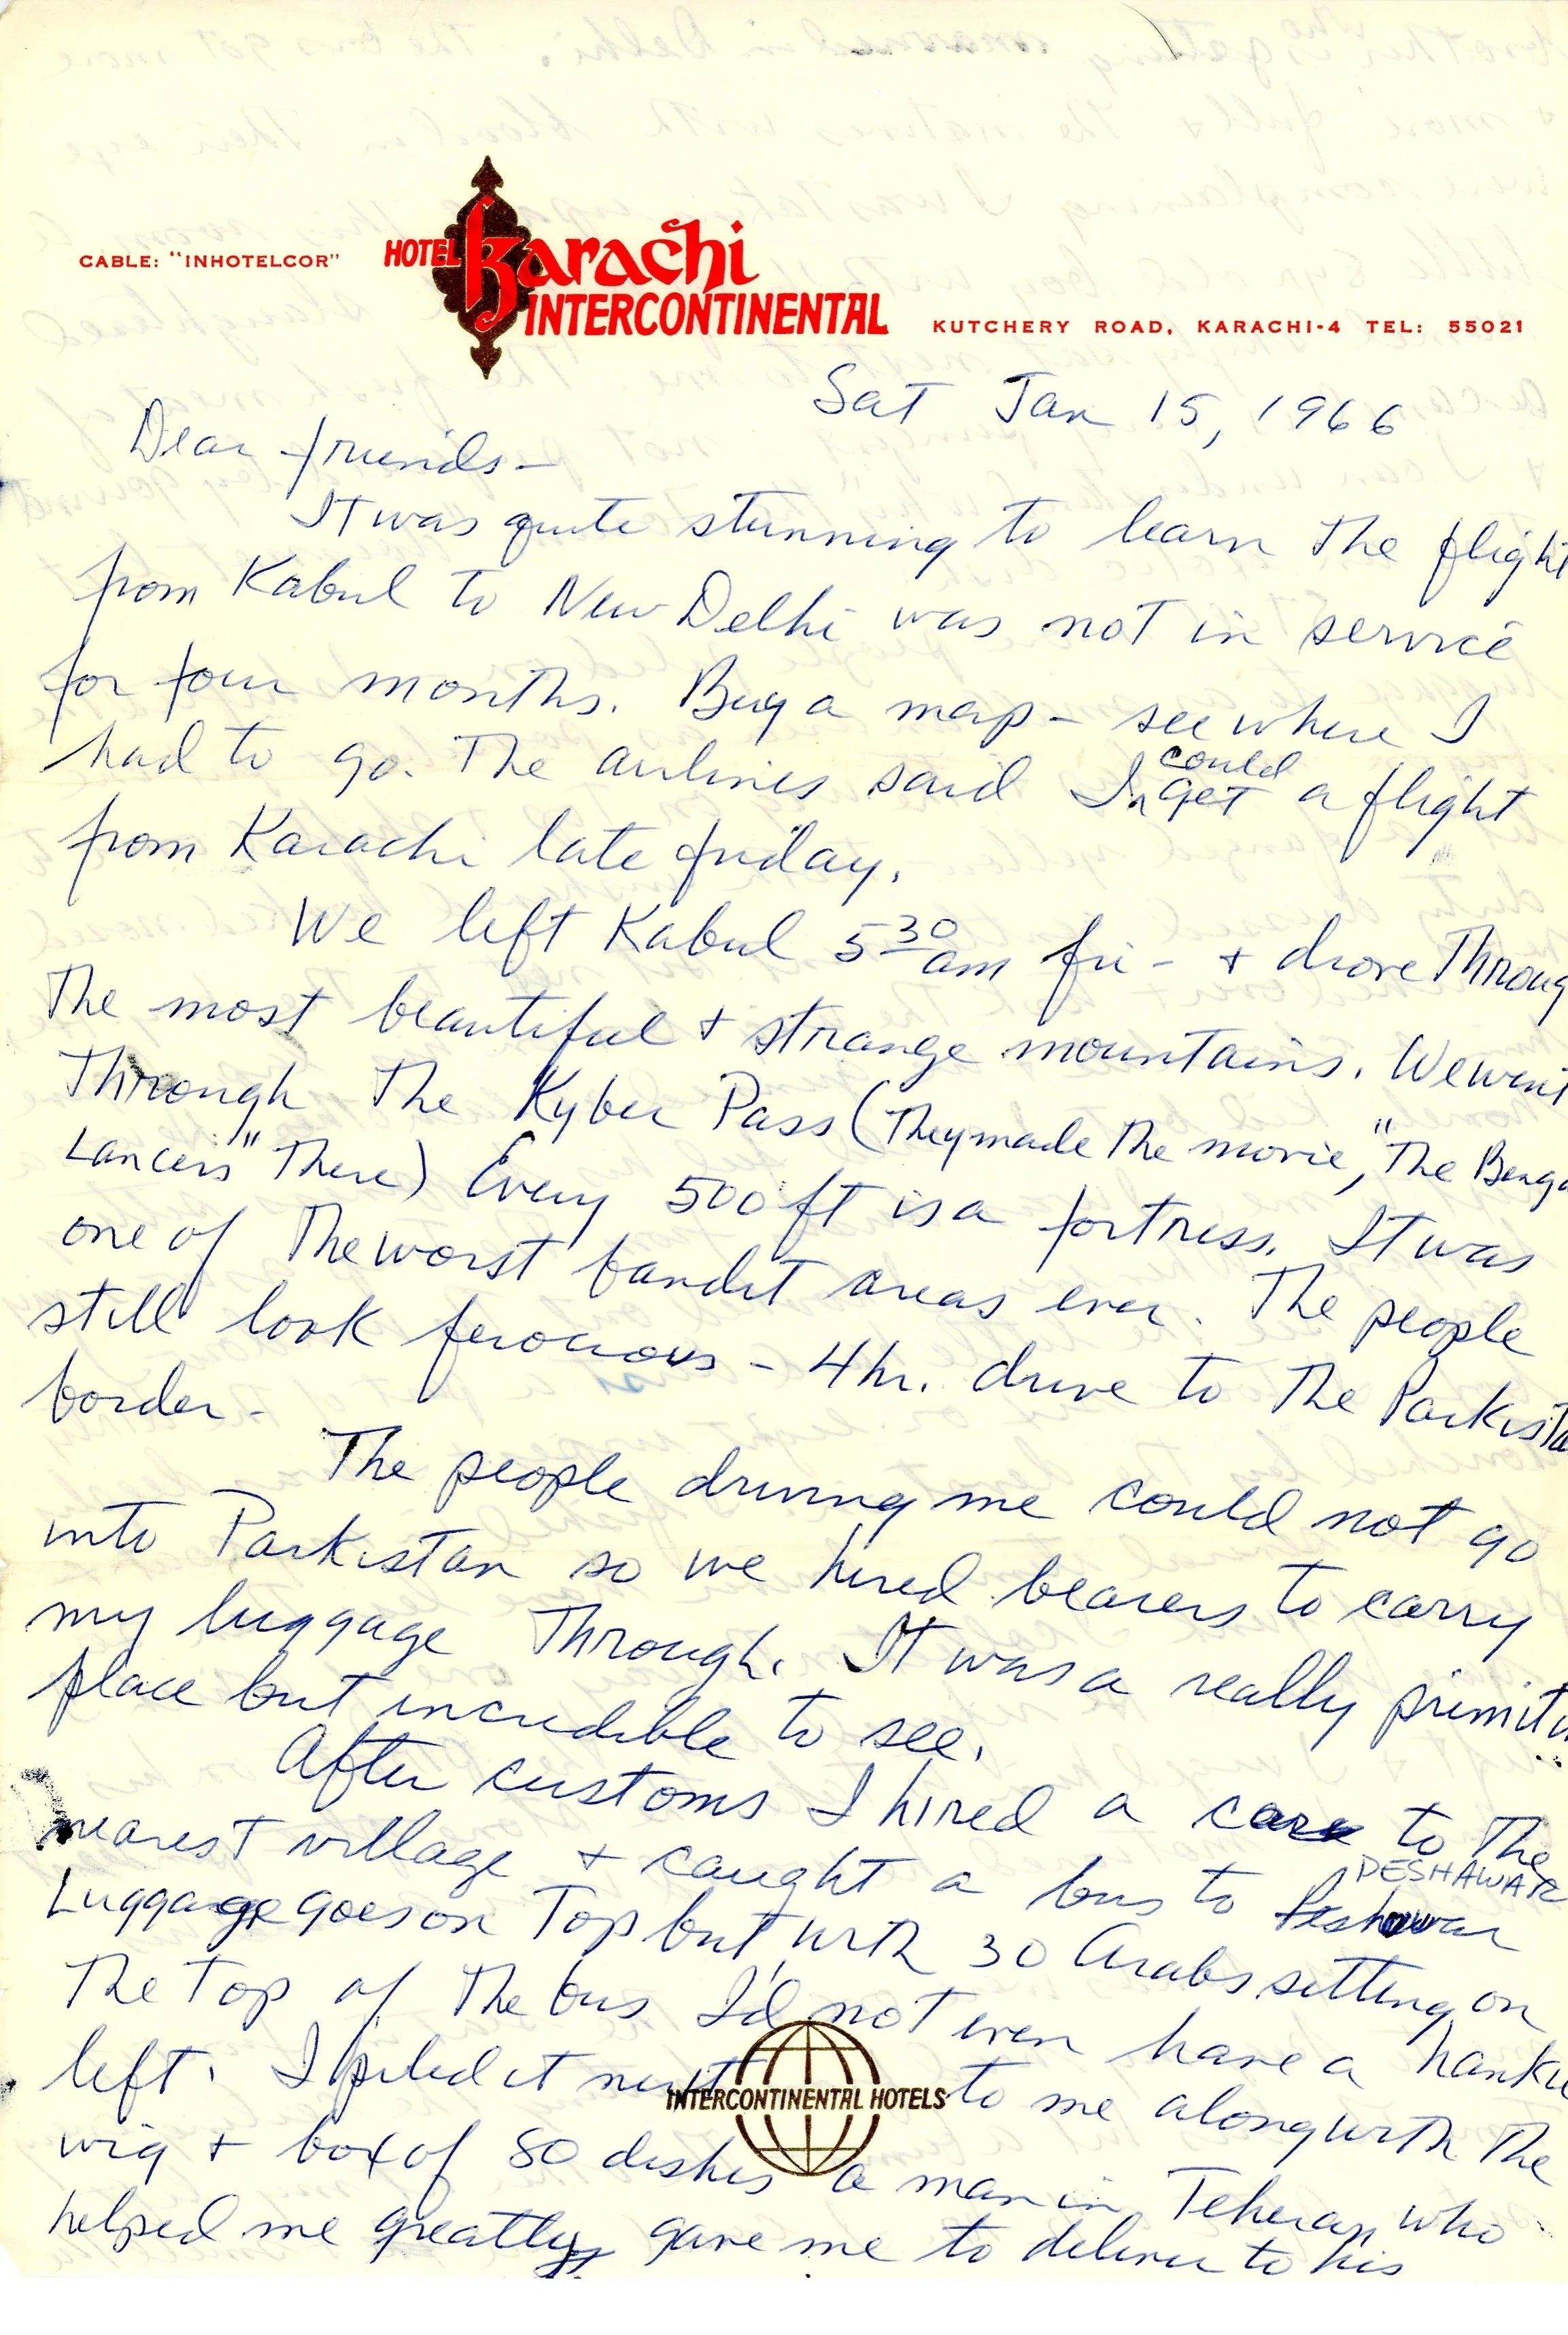 CABLE: "INHOTELCOR"
HOTEL Karachi
INTERCONTINENTAL
KUTCHERY ROAD, KARACHI-4 TEL: 55021
Sat Jan 15, 1966
Dear friends-
It was quite stunning to learn the flight
from Kabul to New Delhi was not in service
for four months. Buy a map - see where I
had to go. The airlines said I could get a flight
from Karachi late friday.
We left Kabul 5 30 am fri - + drove Throug
The most beautiful + strange mountains. We went
Through The Kyber Pass (They made The movie, "The Benga
Lancers" There) Every 500 ft is a fortress. It was
one of The worst bandit areas ever. The people
still look ferocious - 4 hr. drive to The Parkista
border-
The people driving me could not go
into Parkistan so we hired bearers to carry
my luggage Through. It was a really primitiv
place but incredible to see.
After customs I hired a car to The
nearest village + caught a bus to Peshawar PESHAWAR
Luggage goes on Top but with 30 Arabs sitting on
The Top of The bus I'd not even have a hankie
left. I piled it next to me along with The
wig + box of 80 dishes a man in Teheran who
helped me greatly gave me to deliver to his
INTERCONTINENTAL HOTELS